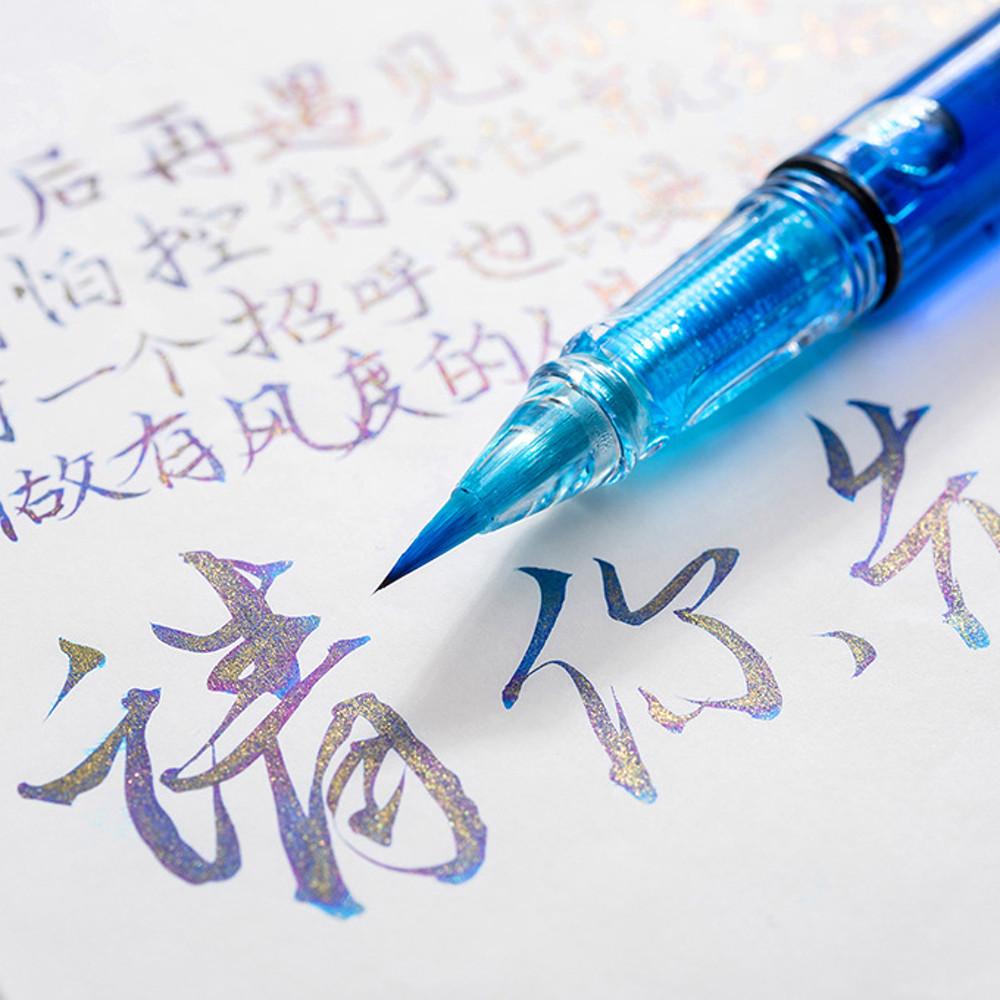 后再遇见你
怕控制不住就
一个招呼也只是
做有风度的人
请你